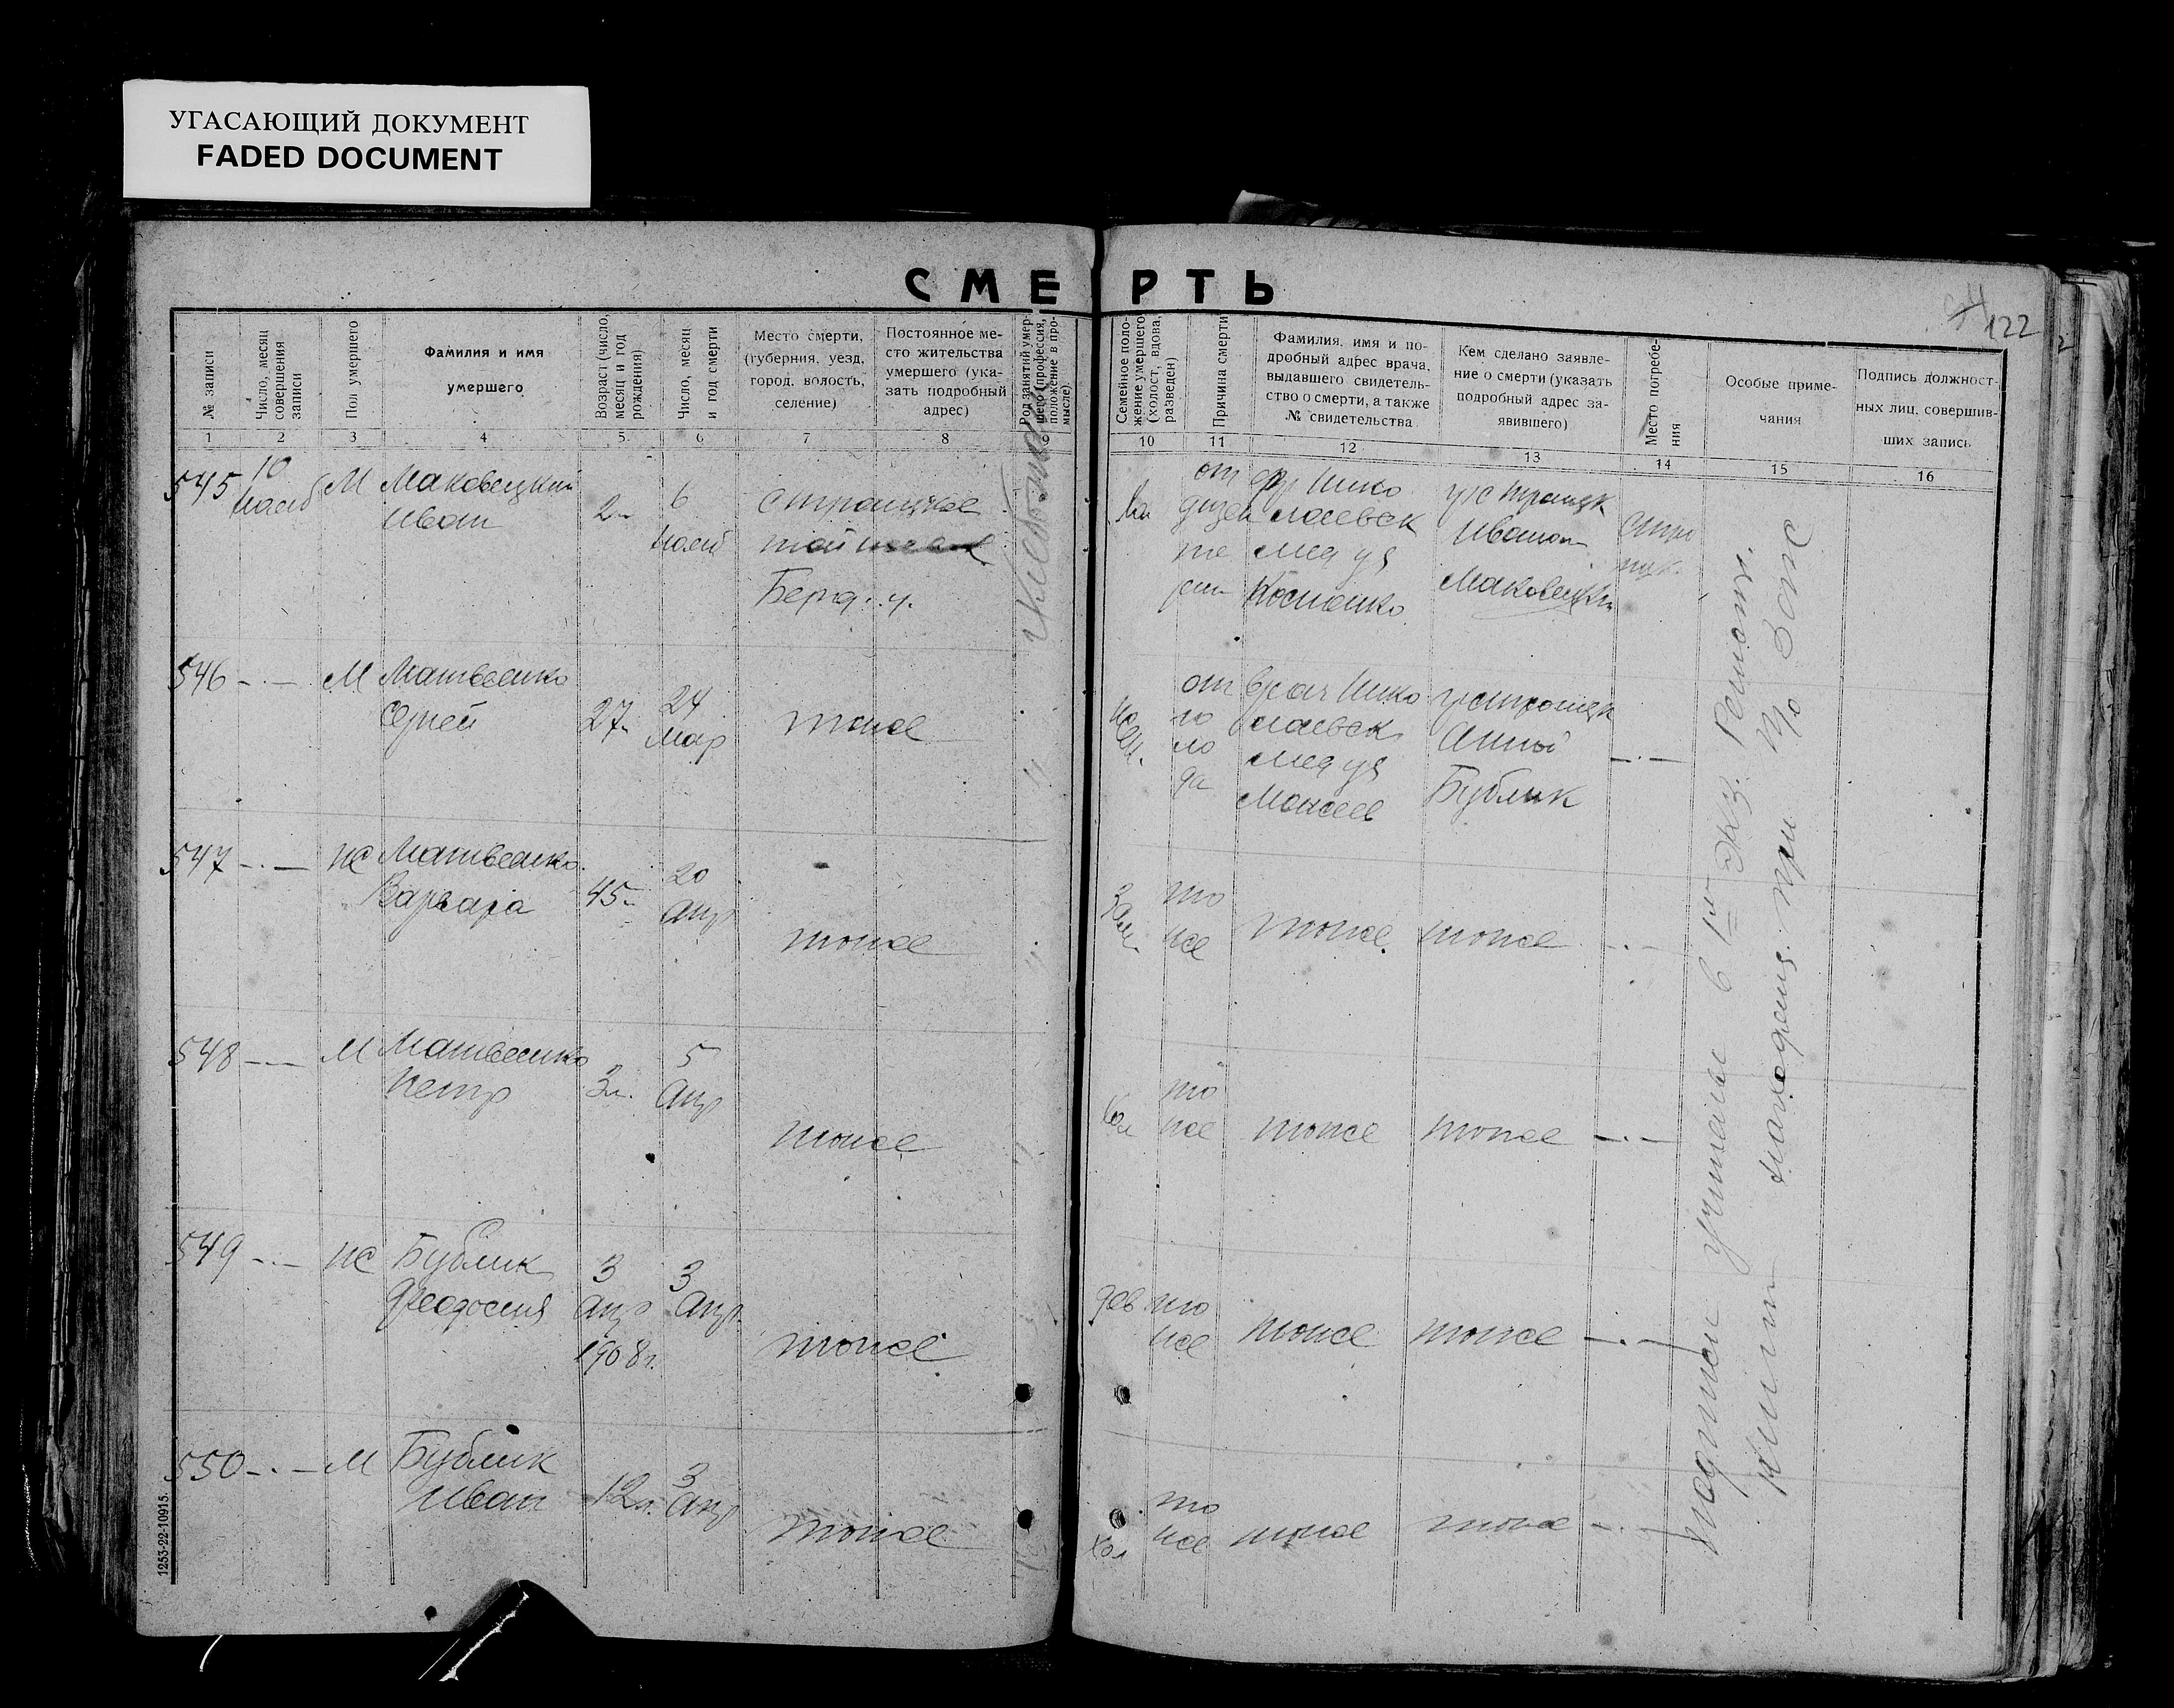 УГАСАЮЩИЙ ДОКУМЕНТ
FADED DOCUMENT
СМЕРТЬ
122
№ записи
Число, месяц совершения записи
Пол умершего
Фамилия и имя
умершего
Возраст (число, месяц и год рождения)
Число, месяц и год смерти
Место смерти,
(губерния, уезд,
город, волость,
селение)
Постоянное ме-
сто жительства
умершего (ука-
зать подробный
адрес)
Род занятий умер-
шего (профессия,
положение в про-
мысле)
Семейное поло-
жение умершего
(холост, вдова,
разведен)
Причина смерти
Фамилия, имя и по-
дробный адрес врача,
выдавшего свидетель-
ство о смерти, а также
№ свидетельства
Кем сделано заявле-
ние о смерти (указать
подробный адрес за-
явившего)
Место погребе-
ния
Особые приме-
чания
Подпись должност-
ных лиц, совершив-
ших запись
1 2 3 4 5 6 7 8 9 10 11 12 13 14 15 16
545
10
М
Маковецкий
Иван
2
6
с Троицкое
той же
от
фр Нико
лаевск
мед уч
Костенко
Иваном
546 -·- М Матвеенко
Сергей
27
24
Мар
тоже
от
го
ло
да
врач Нико
лаевск
мед уч
Моисеев
Анной
Бублик
-·-
547 -·- Ж Матвеенко
Варвара
45
20
Апр
тоже
то
же
тоже
тоже
-·-
548 -·- М Матвеенко
Петр
3 л.
5
Апр
тоже
то
же
тоже
тоже
-·-
549 -·- Ж Бублик
Феодосия
3
Апр
1908 г.
3
Апр.
тоже
дев
то
же
тоже
тоже
-·-
550 -·- М Бублик
Иван
12 л.
3
Апр
тоже
хол
то
же
тоже
тоже
-·-
подписи учинены в 1м экз. Регистр.
Книги находящ. при
1253-22-10915.